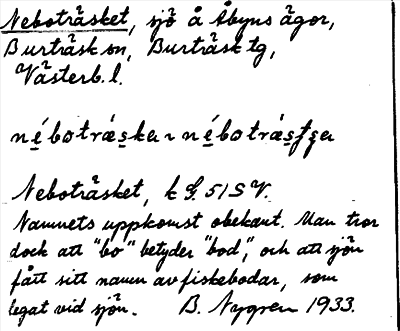 Neboträsket, sjö å Åbyns ägor,
Burträsk sn, Burträsk tg,
Västerb. l.
Neboträsket, k G. 51 S V.
Namnets uppkomst obekant. Man tror
dock att "bo" betyder "bod", och att sjön
fått sitt namn av fiskebodar, som
legat vid sjön. B. Nygren 1933.